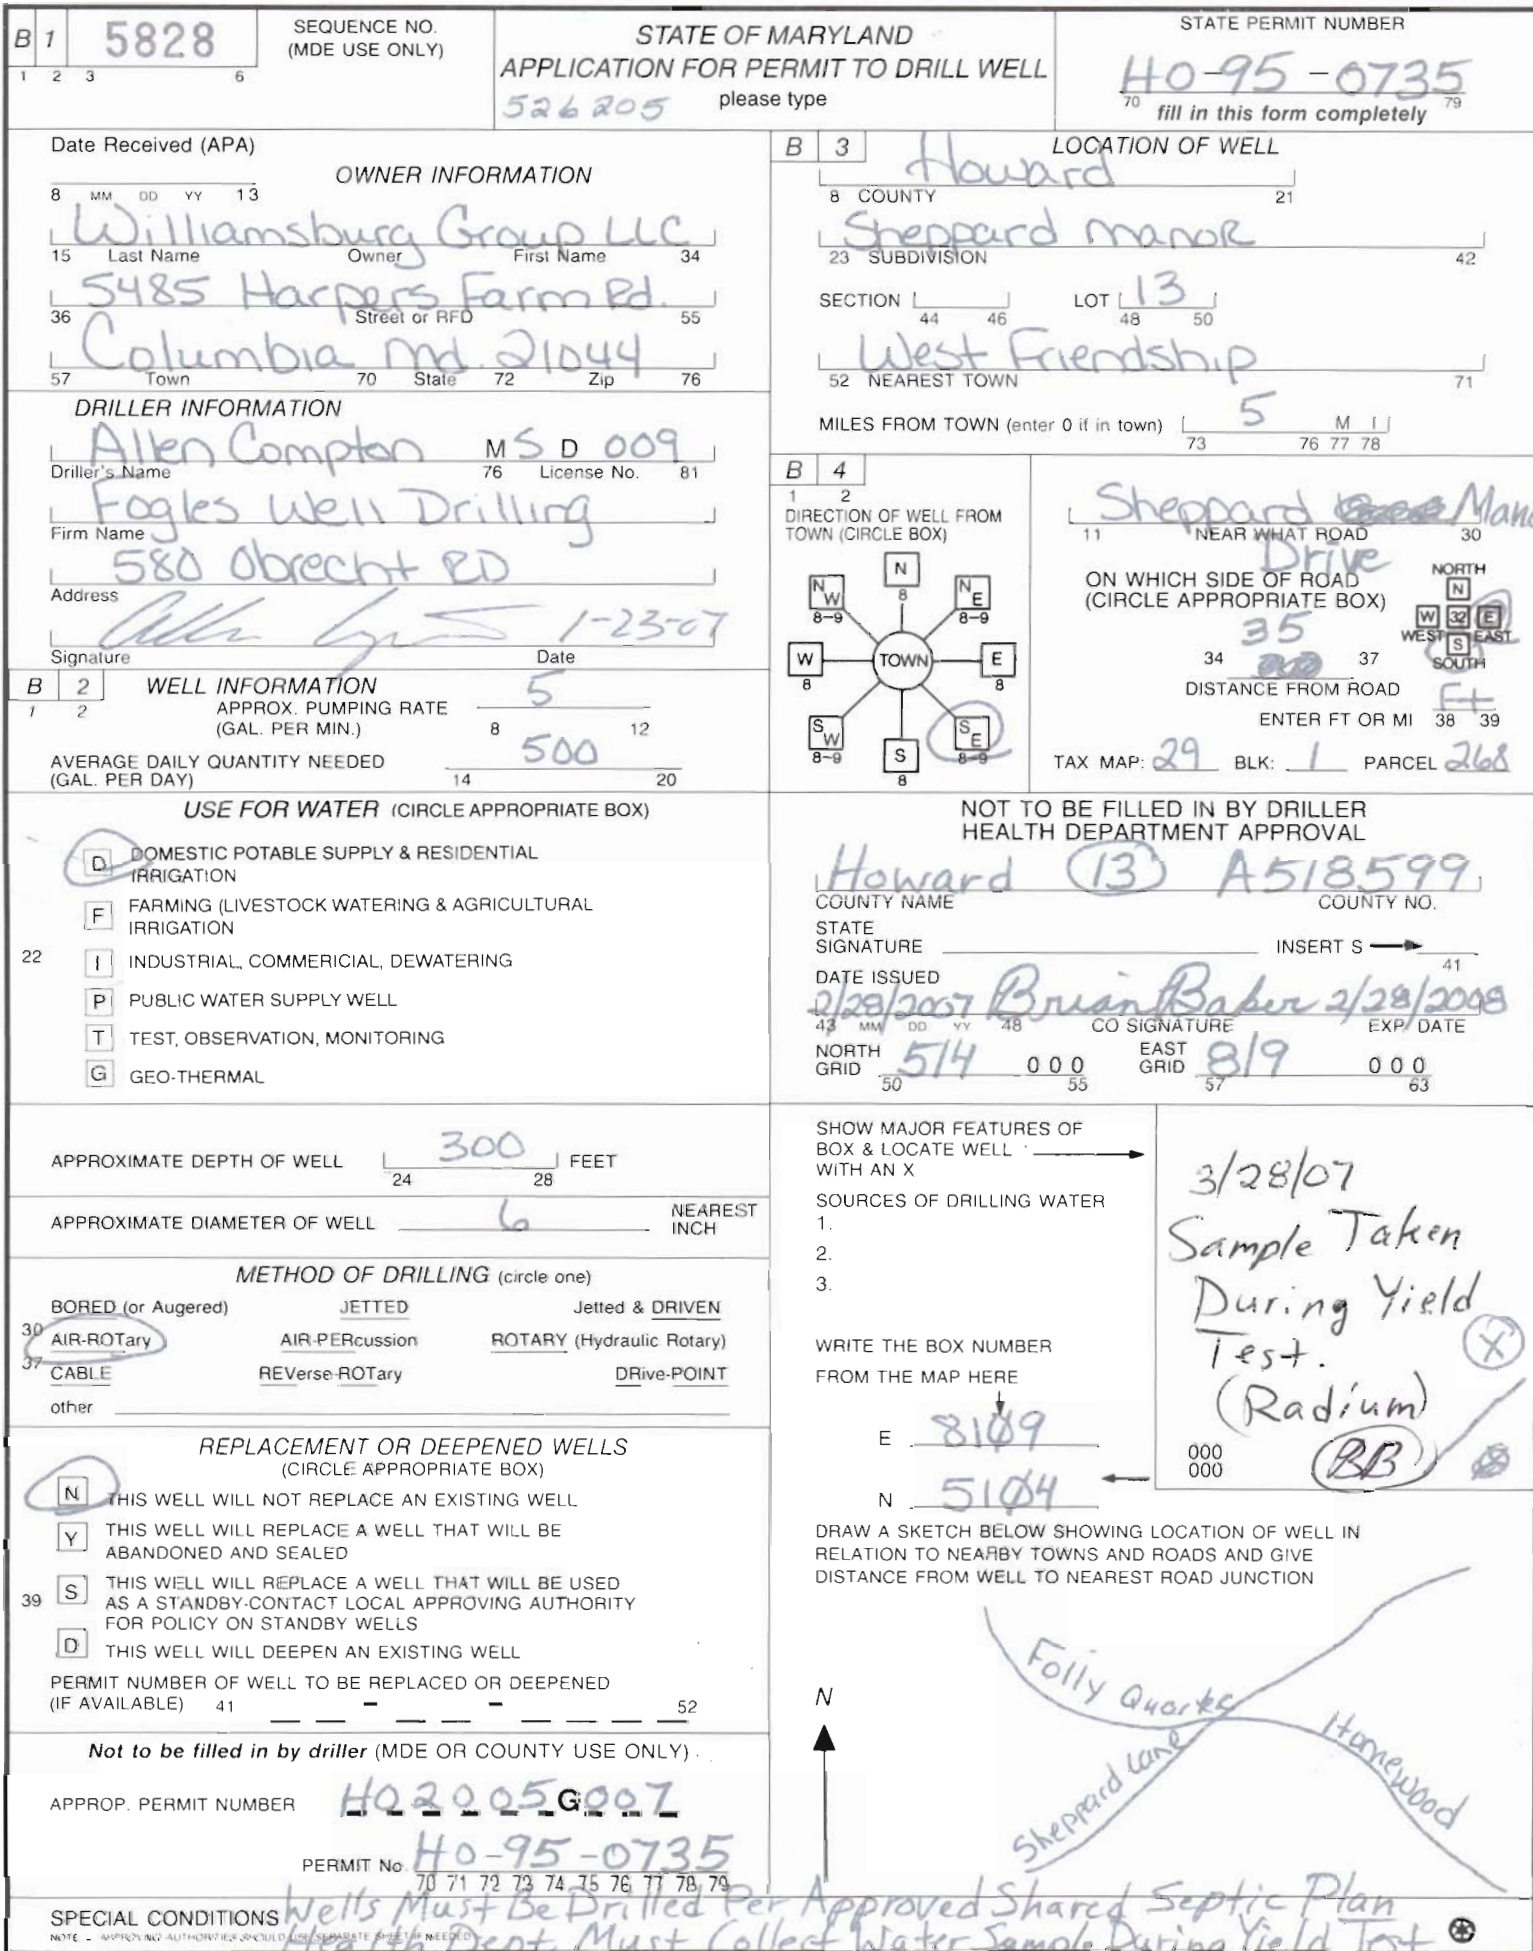 B 1 5828
1 2 3 6
SEQUENCE NO.
(MDE USE ONLY)
STATE OF MARYLAND
APPLICATION FOR PERMIT TO DRILL WELL
526205 please type
STATE PERMIT NUMBER
HO-95-0735
70 79
fill in this form completely
Date Received (APA)
8 MM DD YY 13
OWNER INFORMATION
Williamsburg Group LLC
15 Last Name Owner First Name 34
5485 Harpers Farm Rd.
36 Street or RFD 55
Columbia Md. 21044
57 Town 70 State 72 Zip 76
DRILLER INFORMATION
Allen Compton M S D 009
Driller's Name 76 License No. 81
Fogles Well Drilling
Firm Name
580 Obrecht RD
Address
1-23-07
Signature Date
B 2 WELL INFORMATION
1 2
APPROX. PUMPING RATE 5
(GAL. PER MIN.) 8 12
AVERAGE DAILY QUANTITY NEEDED 500
(GAL. PER DAY) 14 20
USE FOR WATER (CIRCLE APPROPRIATE BOX)
D DOMESTIC POTABLE SUPPLY & RESIDENTIAL
IRRIGATION
F FARMING (LIVESTOCK WATERING & AGRICULTURAL
IRRIGATION
22 I INDUSTRIAL, COMMERICIAL, DEWATERING
P PUBLIC WATER SUPPLY WELL
T TEST, OBSERVATION, MONITORING
G GEO-THERMAL
APPROXIMATE DEPTH OF WELL 300 FEET
24 28
APPROXIMATE DIAMETER OF WELL 6 NEAREST
INCH
METHOD OF DRILLING (circle one)
BORED (or Augered) JETTED Jetted & DRIVEN
30 AIR-ROTary AIR-PERcussion ROTARY (Hydraulic Rotary)
37 CABLE REVerse-ROTary DRive-POINT
other
REPLACEMENT OR DEEPENED WELLS
(CIRCLE APPROPRIATE BOX)
N THIS WELL WILL NOT REPLACE AN EXISTING WELL
Y THIS WELL WILL REPLACE A WELL THAT WILL BE
ABANDONED AND SEALED
39 S THIS WELL WILL REPLACE A WELL THAT WILL BE USED
AS A STANDBY-CONTACT LOCAL APPROVING AUTHORITY
FOR POLICY ON STANDBY WELLS
D THIS WELL WILL DEEPEN AN EXISTING WELL
PERMIT NUMBER OF WELL TO BE REPLACED OR DEEPENED
(IF AVAILABLE) 41 - - 52
Not to be filled in by driller (MDE OR COUNTY USE ONLY)
APPROP. PERMIT NUMBER HO2005G007
PERMIT No. HO-95-0735
70 71 72 73 74 75 76 77 78 79
B 3 LOCATION OF WELL
Howard
8 COUNTY 21
Sheppard Manor
23 SUBDIVISION 42
SECTION LOT 13
44 46 48 50
West Friendship
52 NEAREST TOWN 71
MILES FROM TOWN (enter 0 if in town) 5 M I
73 76 77 78
B 4
1 2
DIRECTION OF WELL FROM
TOWN (CIRCLE BOX)
N
8
NW
8-9
NE
8-9
W
8
TOWN
E
8
SW
8-9
S
8
SE
8-9
Sheppard Mano
11 NEAR WHAT ROAD 30
Drive
ON WHICH SIDE OF ROAD
(CIRCLE APPROPRIATE BOX)
NORTH
N
W 32 E
WEST EAST
S
SOUTH
35
34 37
DISTANCE FROM ROAD
ENTER FT OR MI Ft
38 39
TAX MAP: 29 BLK: 1 PARCEL 268
NOT TO BE FILLED IN BY DRILLER
HEALTH DEPARTMENT APPROVAL
Howard 13 A518599
COUNTY NAME COUNTY NO.
STATE
SIGNATURE INSERT S
41
DATE ISSUED
2/28/2007 Brian Baker 2/28/2008
43 MM DD YY 48 CO SIGNATURE EXP. DATE
NORTH GRID 514 000 EAST GRID 819 000
50 55 57 63
SHOW MAJOR FEATURES OF
BOX & LOCATE WELL
WITH AN X
SOURCES OF DRILLING WATER
1.
2.
3.
WRITE THE BOX NUMBER
FROM THE MAP HERE
E 8109
N 5104
3/28/07
Sample Taken
During Yield
Test. X
(Radium)
000
000
BB
DRAW A SKETCH BELOW SHOWING LOCATION OF WELL IN
RELATION TO NEARBY TOWNS AND ROADS AND GIVE
DISTANCE FROM WELL TO NEAREST ROAD JUNCTION
N
Folly Quarke
Homewood
Sheppard Lane
SPECIAL CONDITIONS Wells Must Be Drilled Per Approved Shared Septic Plan
NOTE - APPROVING AUTHORITIES SHOULD USE SEPARATE SHEET IF NEEDED
Health Dept. Must Collect Water Sample During Yield Test